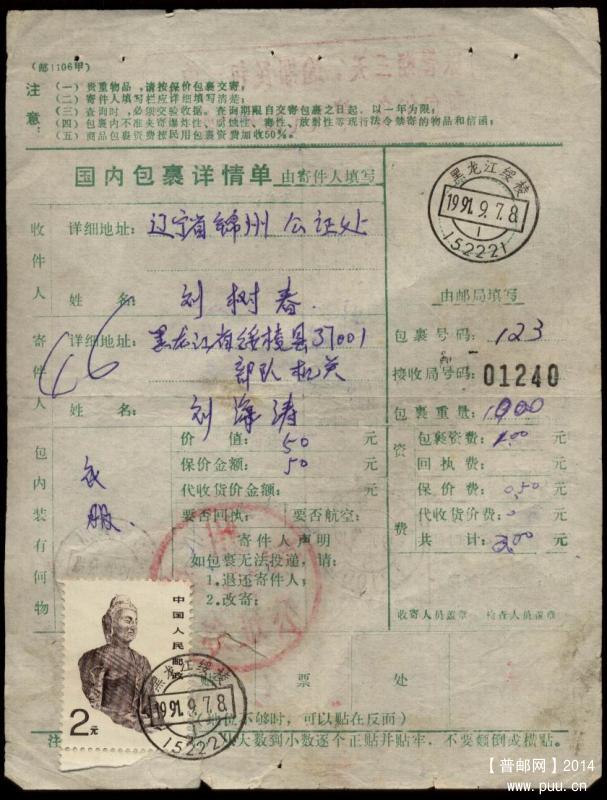 (邮1106甲)
注意:
(一)贵重物品,请按保价包裹交寄;
(二)寄件人填写栏应详细填写清楚;
(三)查询时,必须交验收据。查询期限自交寄包裹之日起,以一年为限;
(四)包裹内不准夹寄爆炸性、易蚀性、毒性、放射性等现行法令禁寄的物品和信函;
(五)商品包裹资费按民用包裹资费加收50%。
国内包裹详情单 由寄件人填写
黑龙江绥棱
1991.9.7.8
1
152221
收件人
详细地址: 辽宁省锦州公证处
姓名: 刘树春.
寄件人
详细地址: 黑龙江省绥棱县37001
部队机关
姓名: 刘海涛
由邮局填写
包裹号码: 123
接收局号码: 01240
包裹重量: 1000
包内装有何物
衣服.
价值: 50 元
保价金额: 50 元
代收货价金额: 元
要否回执: 要否航空:
寄件人声明
如包裹无法投递,请:
1.退还寄件人;
2.改寄:
资费
包裹资费: 元
回执费: 元
保价费: 0.50 元
代收货价费: 元
共计: 元
收寄人员盖章 检查人员盖章
中国人民邮政
2元
黑龙江绥棱
1991.9.7.8
152221
贴 票 处
(地位不够时,可以贴在反面)
注 从大数到小数逐个正贴并贴牢,不要颠倒或横贴。
【普邮网】2014
www.puu.cn